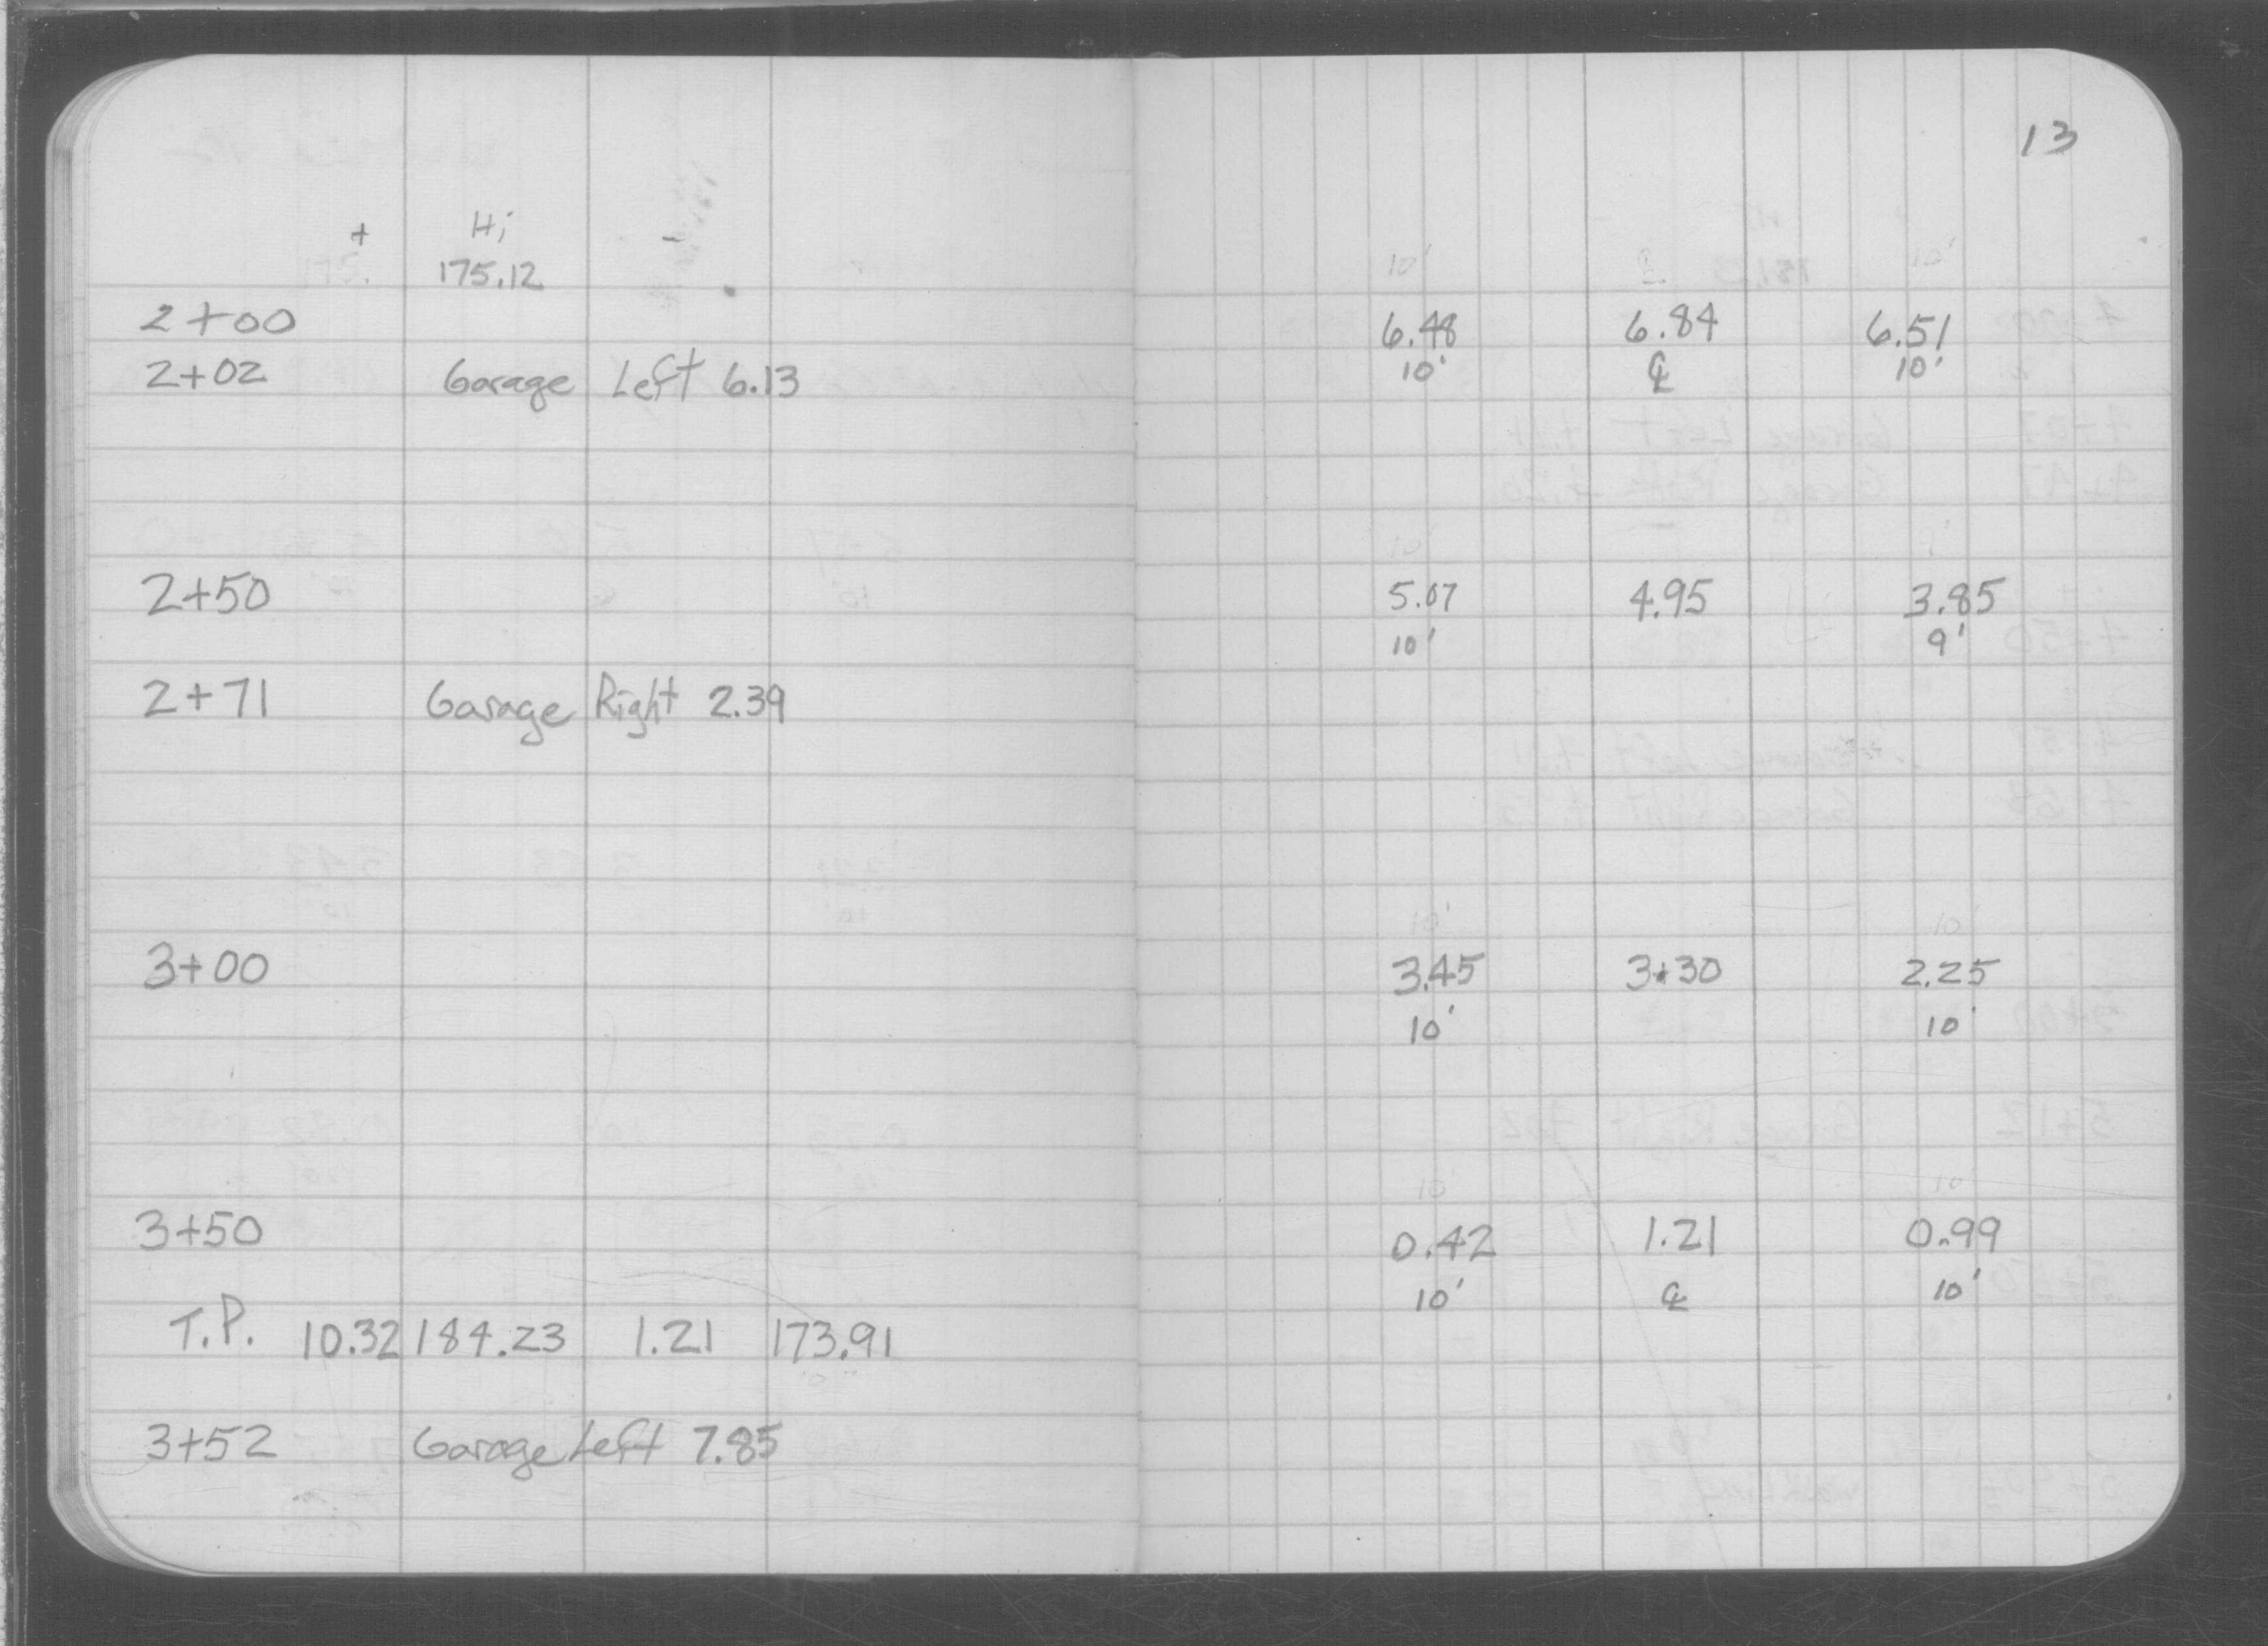 13
+ Hi -
175.12
10' 10'
2+00 6.48 6.84 6.51
2+02 Garage Left 6.13 10' ℄ 10'
10' 9'
2+50 5.07 4.95 3.85
10' 9'
2+71 Garage Right 2.39
10' 10'
3+00 3.45 3.30 2.25
10' 10'
10' 10'
3+50 0.42 1.21 0.99
10' ℄ 10'
T.P. 10.32 184.23 1.21 173.91
3+52 Garage Left 7.85